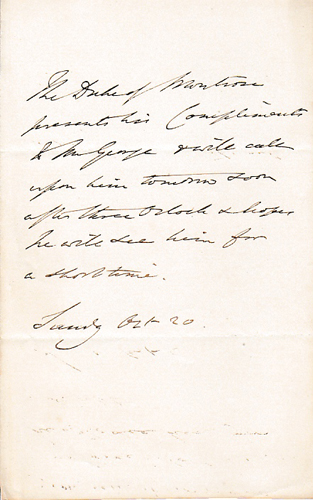 The Duke of Montrose
presents his Compliments
to Mr George & will call
upon him tomorrow soon
after three O'clock & hopes
he will see him for
a short time.
Sunday Oct 20.